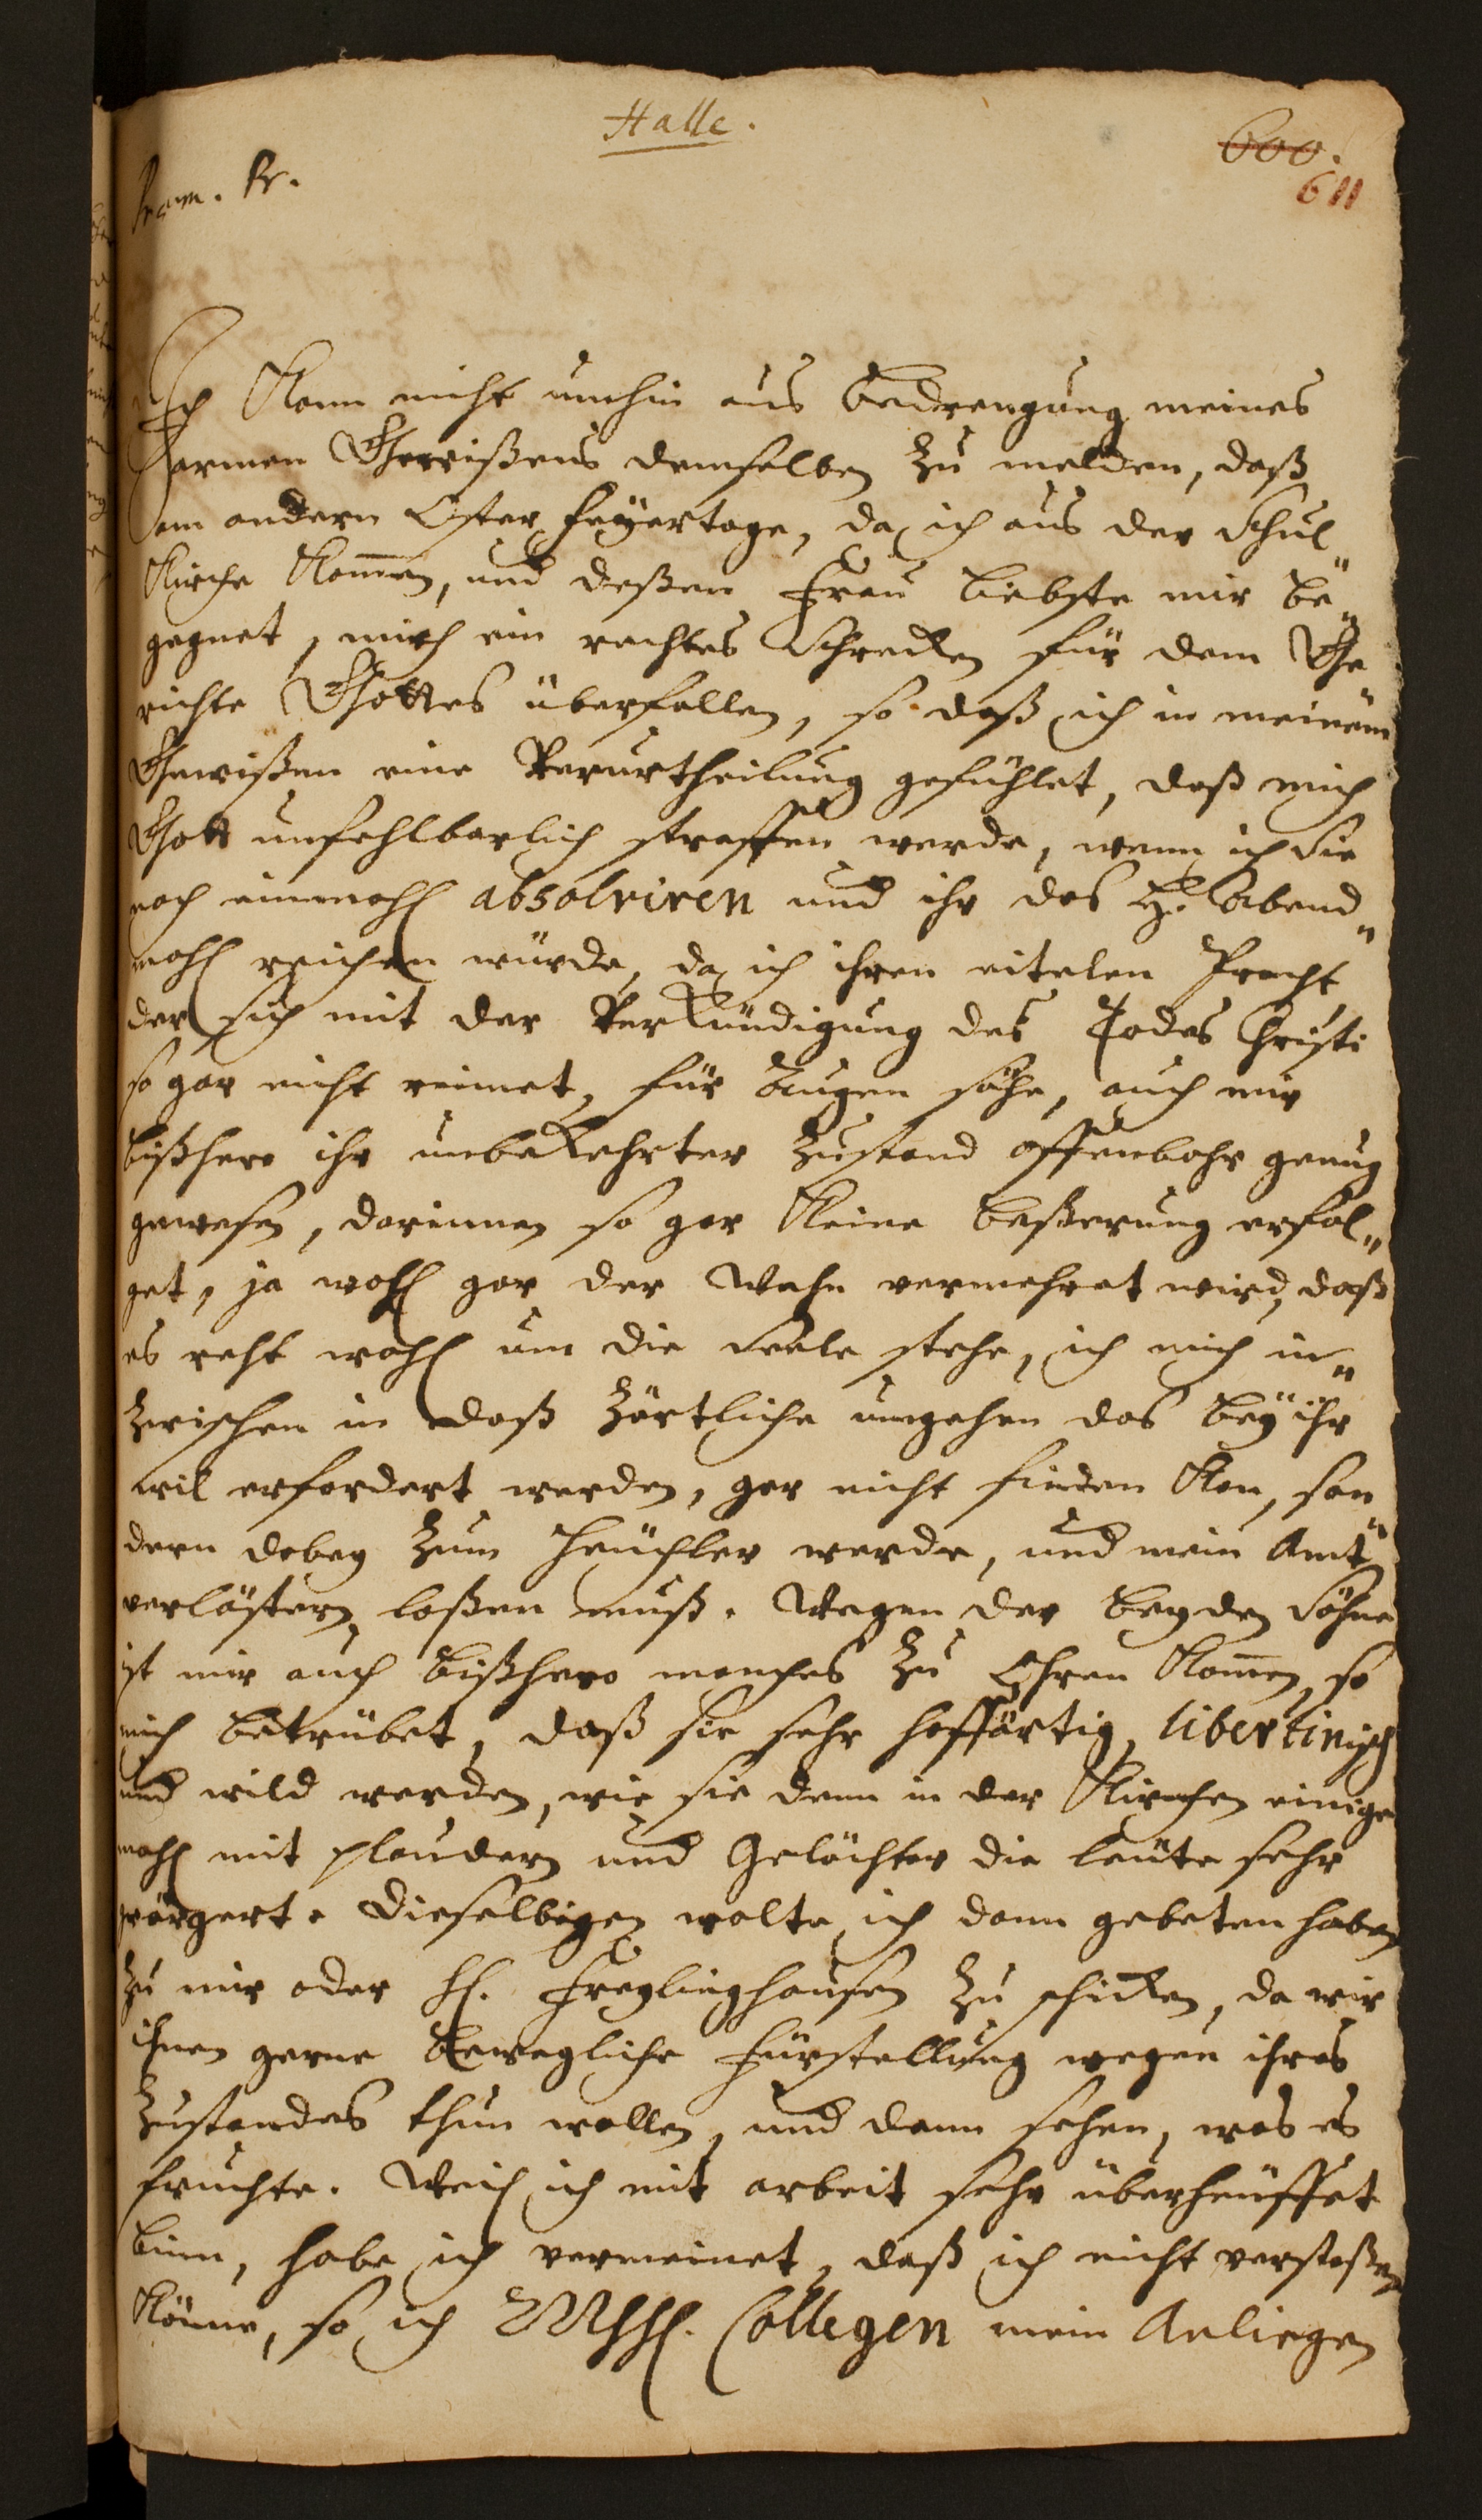 Halle.
600.
611
Praem. Pr.
Ich kann nicht umhin aus bedrengung meines
armen Gewißens demselben zu melden, daß
am andern Oster feyertage, da ich aus der Schul"
Kirche kom̅en, und deßen Frau Liebste mir be"
gegnet, mich ein rechtes Schrecken für dem Ge
richte Gottes überfallen, so daß ich in meinem
Gewißen eine Verurtheilung gefühlet, daß mich
Gott unfehlbarlich straffen werde, wenn ich Sie
noch einmahl absolviren und ihr das H. Abend"
mahl reichen würde, da ich ihren eitelen Pracht
der sich mit der Verkündigung des Todes Christi
so gar nicht reimet, für Augen sähe, auch mir
bißhero ihr unbekehrter Zustand offenbahr genug
gewesen, darinnen so gar keine beßerung erfol"
get, ja wohl gar der Wahn vermehret wird, daß
es recht wohl um die Seele stehe, ich mich in"
zwischen in daß zärtliche umgehen das bey ihr
wil erfordert werden, gar nicht finden kan, son"
dern dabey zum Heuchler werde, und mein Amt
verlästern laßen muß. Wegen der beyden Söhne
ist mir auch bißhero manches zu Ohren kom̅en, so
mich betrübet, daß sie sehr hoffärtig, libertinisch
und wild werden, wie sie denn in der Kirchen einige
mahl mit plaudern und Gelächter die leute sehr
geärgert. Dieselbigen wolte ich dann gebeten haben
zu mir oder H. Freylinghausen zu schicken, da wir
ihnen gerne bewegliche Fürstellung wegen ihres
Zustandes thun wollen, und dann sehen, was es
fruchte. Weil ich mit arbeit sehr überheuffet
binn, habe ich vermeinet, daß ich nicht verstoßen
könne, so ich MHH. Collegen mein Anliegen